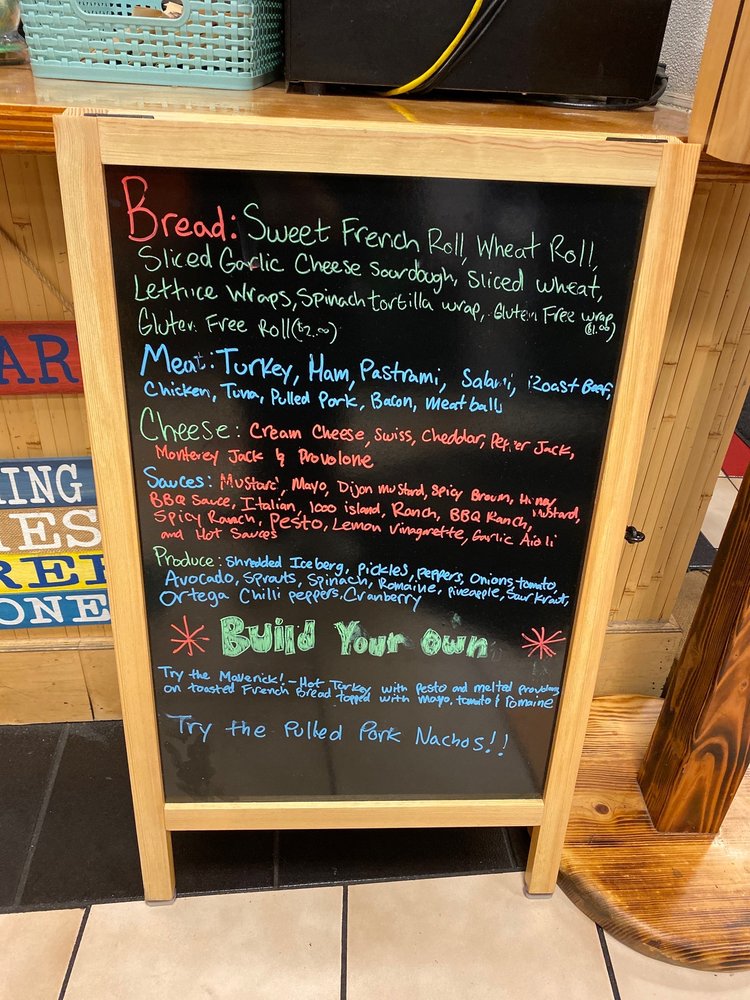 Bread: Sweet French Roll, Wheat Roll,
Sliced Garlic Cheese Sourdough, Sliced wheat,
Lettuce Wraps, Spinach tortilla wrap, Gluten Free wrap
($1.00)
Gluten Free Roll ($2.00)
Meat: Turkey, Ham, Pastrami, Salami, Roast Beef,
Chicken, Tuna, Pulled Pork, Bacon, Meatball
Cheese: Cream Cheese, Swiss, Cheddar, Pepper Jack,
Monterey Jack & Provolone
Sauces: Mustard, Mayo, Dijon mustard, Spicy Brown, Honey
Mustard,
BBQ Sauce, Italian, 1000 island, Ranch, BBQ Ranch,
Spicy Ranch, Pesto, Lemon Vinagarette, Garlic Aioli
and Hot Sauces
Produce: Shredded Iceberg, pickles, peppers, Onions, tomato,
Avocado, sprouts, spinach, Romaine, pineapple, Saurkraut,
Ortega Chilli peppers, Cranberry
Build Your Own
Try the Maverick! - Hot Turkey with pesto and melted provolone
on toasted French Bread topped with Mayo, tomato & Romaine
Try the Pulled Pork Nachos!!
AR
ING
ES
REE
ONE